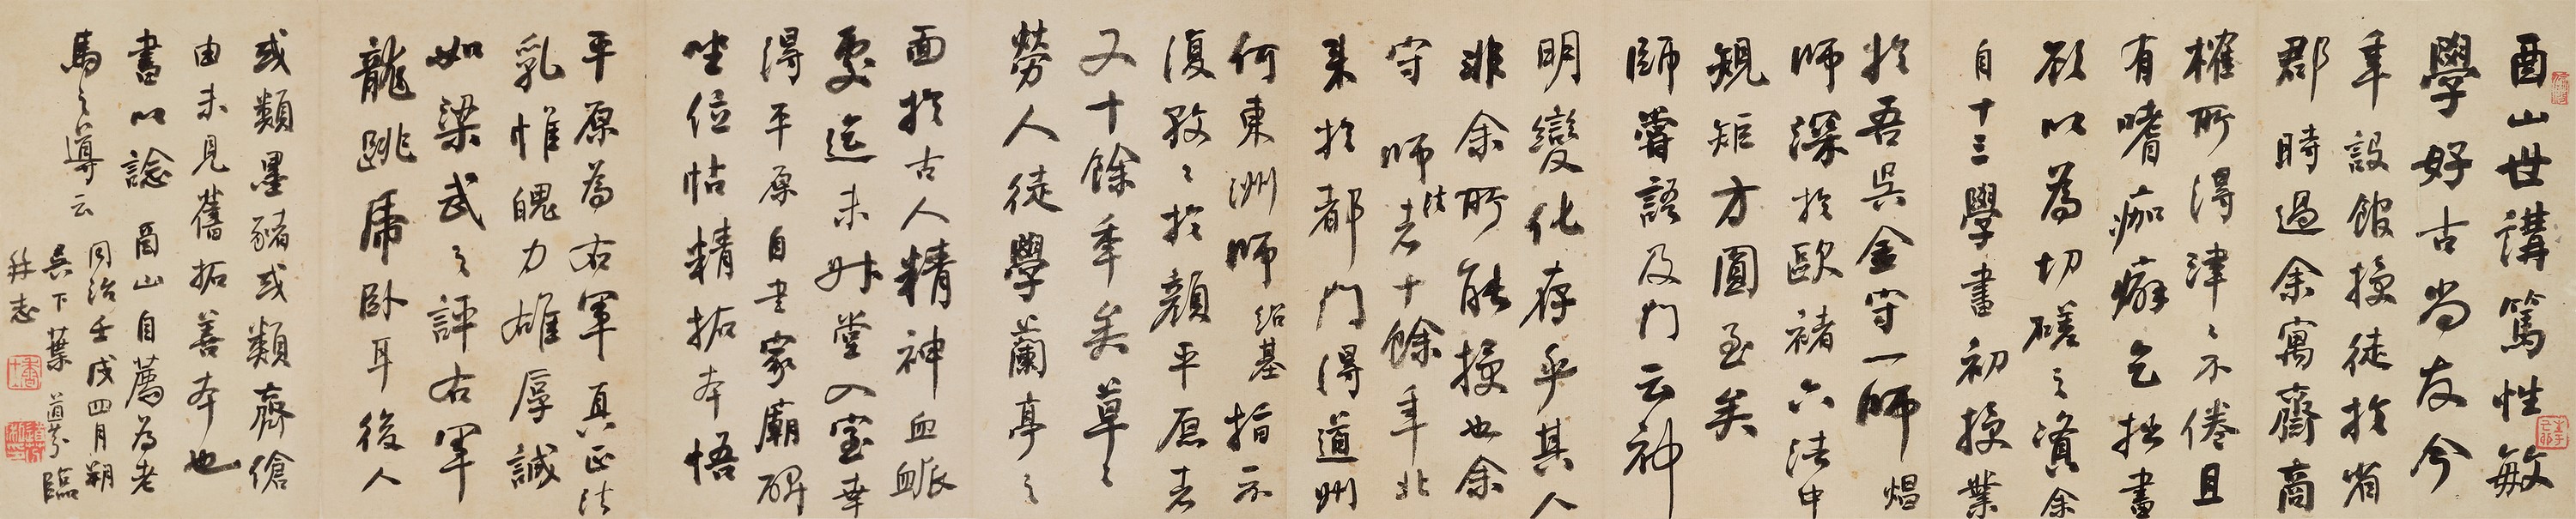 酉山世講篤性敏
學好古尚友今
年設館授徒於省
郡時過余寓齋商
榷所得津〻不倦且
有嗜痂癖乞拙書
欲以為切磋之資余
自十三學書初授業
於吾吳金守一師熀
師深於歐褚六法中
規矩方圓至矣
師嘗語及門云神
明變化存乎其人
非余所能授也余
守師法者十餘年北
來於都門得道州
何東洲師紹基指示
復孜〻於顏平原者
又十餘年矣草〻
勞人徒學蘭亭之
面於古人精神血脈
處迄未升堂入室幸
得平原自書家廟碑
坐位帖精拓本悟
平原為右軍真正法
乳惟魄力雄厚誠
如梁武之評右軍
龍跳虎臥耳後人
或類墨豬或類齊傖
由未見舊拓善本也
書以諗酉山自薦為老
馬之導云
同治壬戌四月朔
吳下葉道芬臨
并志